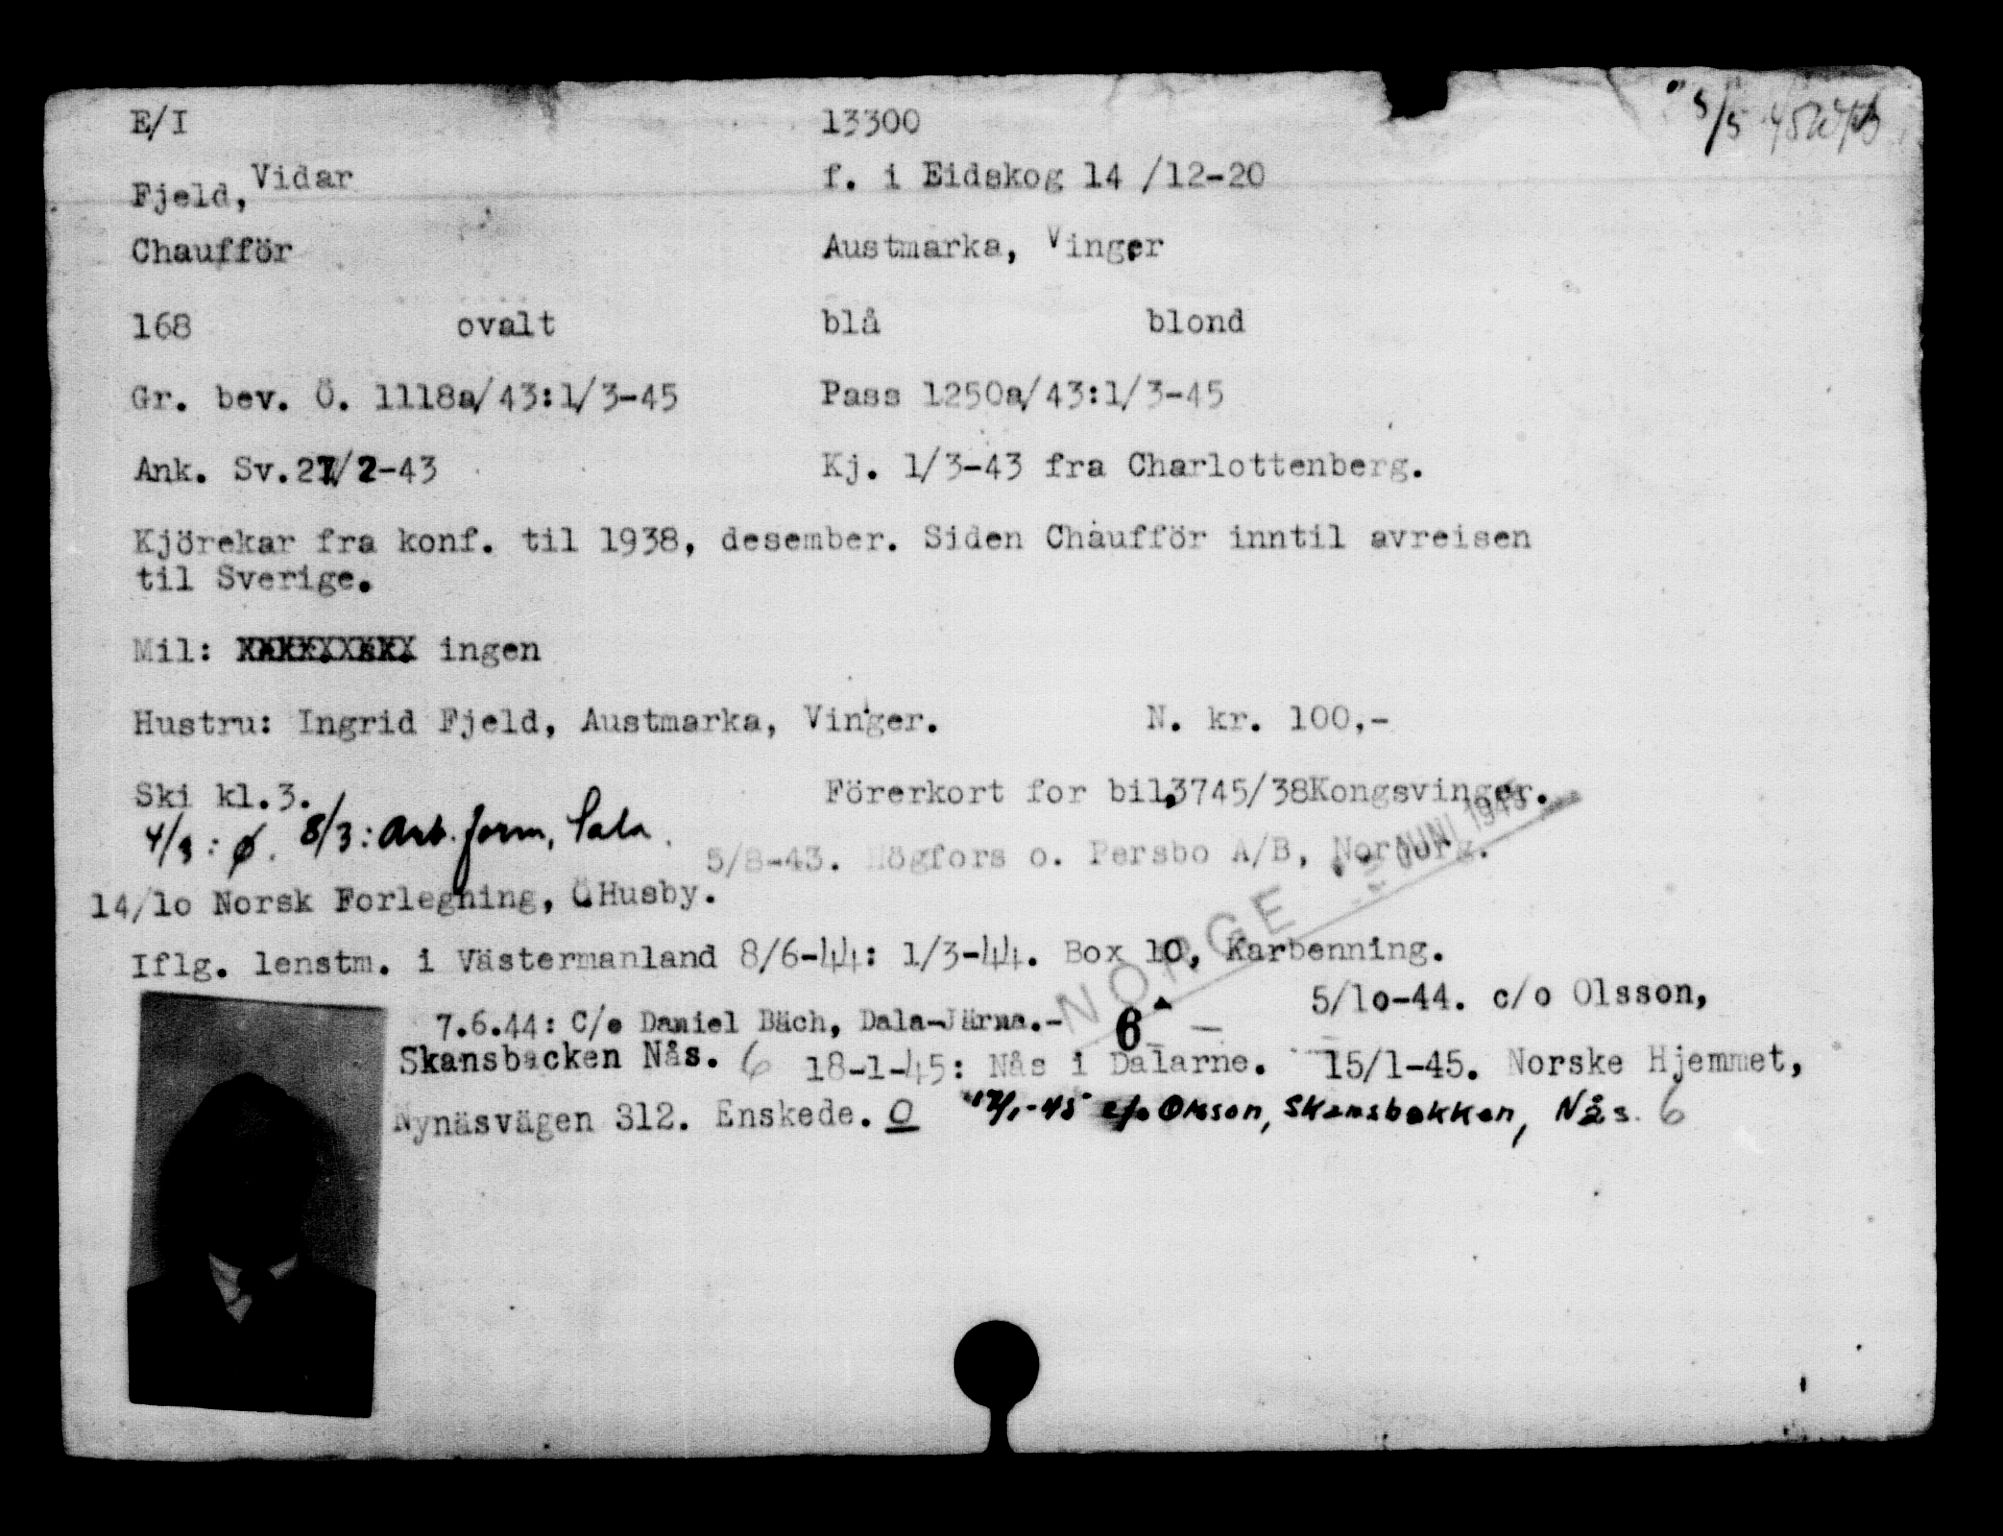 E/I 13300 5/5
Fjeld, Vidar f. i Eidskog 14 /12-20
Chaufför Austmarka, Vinger
168 ovalt blå blond
Gr. bev. Ö. 1118a/43:1/3-45 Pass 1250a/43:1/3-45
Ank. Sv.27/2-43 Kj. 1/3-43 fra Charlottenberg.
Kjörekar fra konf. til 1938, desember. Siden Chaufför inntil avreisen
til Sverige.
Mil: ingen
Hustru: Ingrid Fjeld, Austmarka, Vinger. N. kr. 100,-
Ski kl.3. Förerkort for bil,3745/38Kongsvinger.
4/3: ø. 8/3: Arb. form, Sala.
5/8-43. Högfors o. Persbo A/B, Norberg.
JUNI 1945
14/10 Norsk Forlegning, Ö.Husby.
NORGE
Iflg. lenstm. i Västermanland 8/6-44: 1/3-44. Box 10, Karbenning.
7.6.44: C/o Daniel Bäch, Dala-Järna.- 6 5/10-44. c/o Olsson,
Skansbacken Nås. 6 18-1-45: Nås i Dalarne. 15/1-45. Norske Hjemmet,
Nynäsvägen 312. Enskede. O c/o Olsson, Skansbakken, Nås. 6